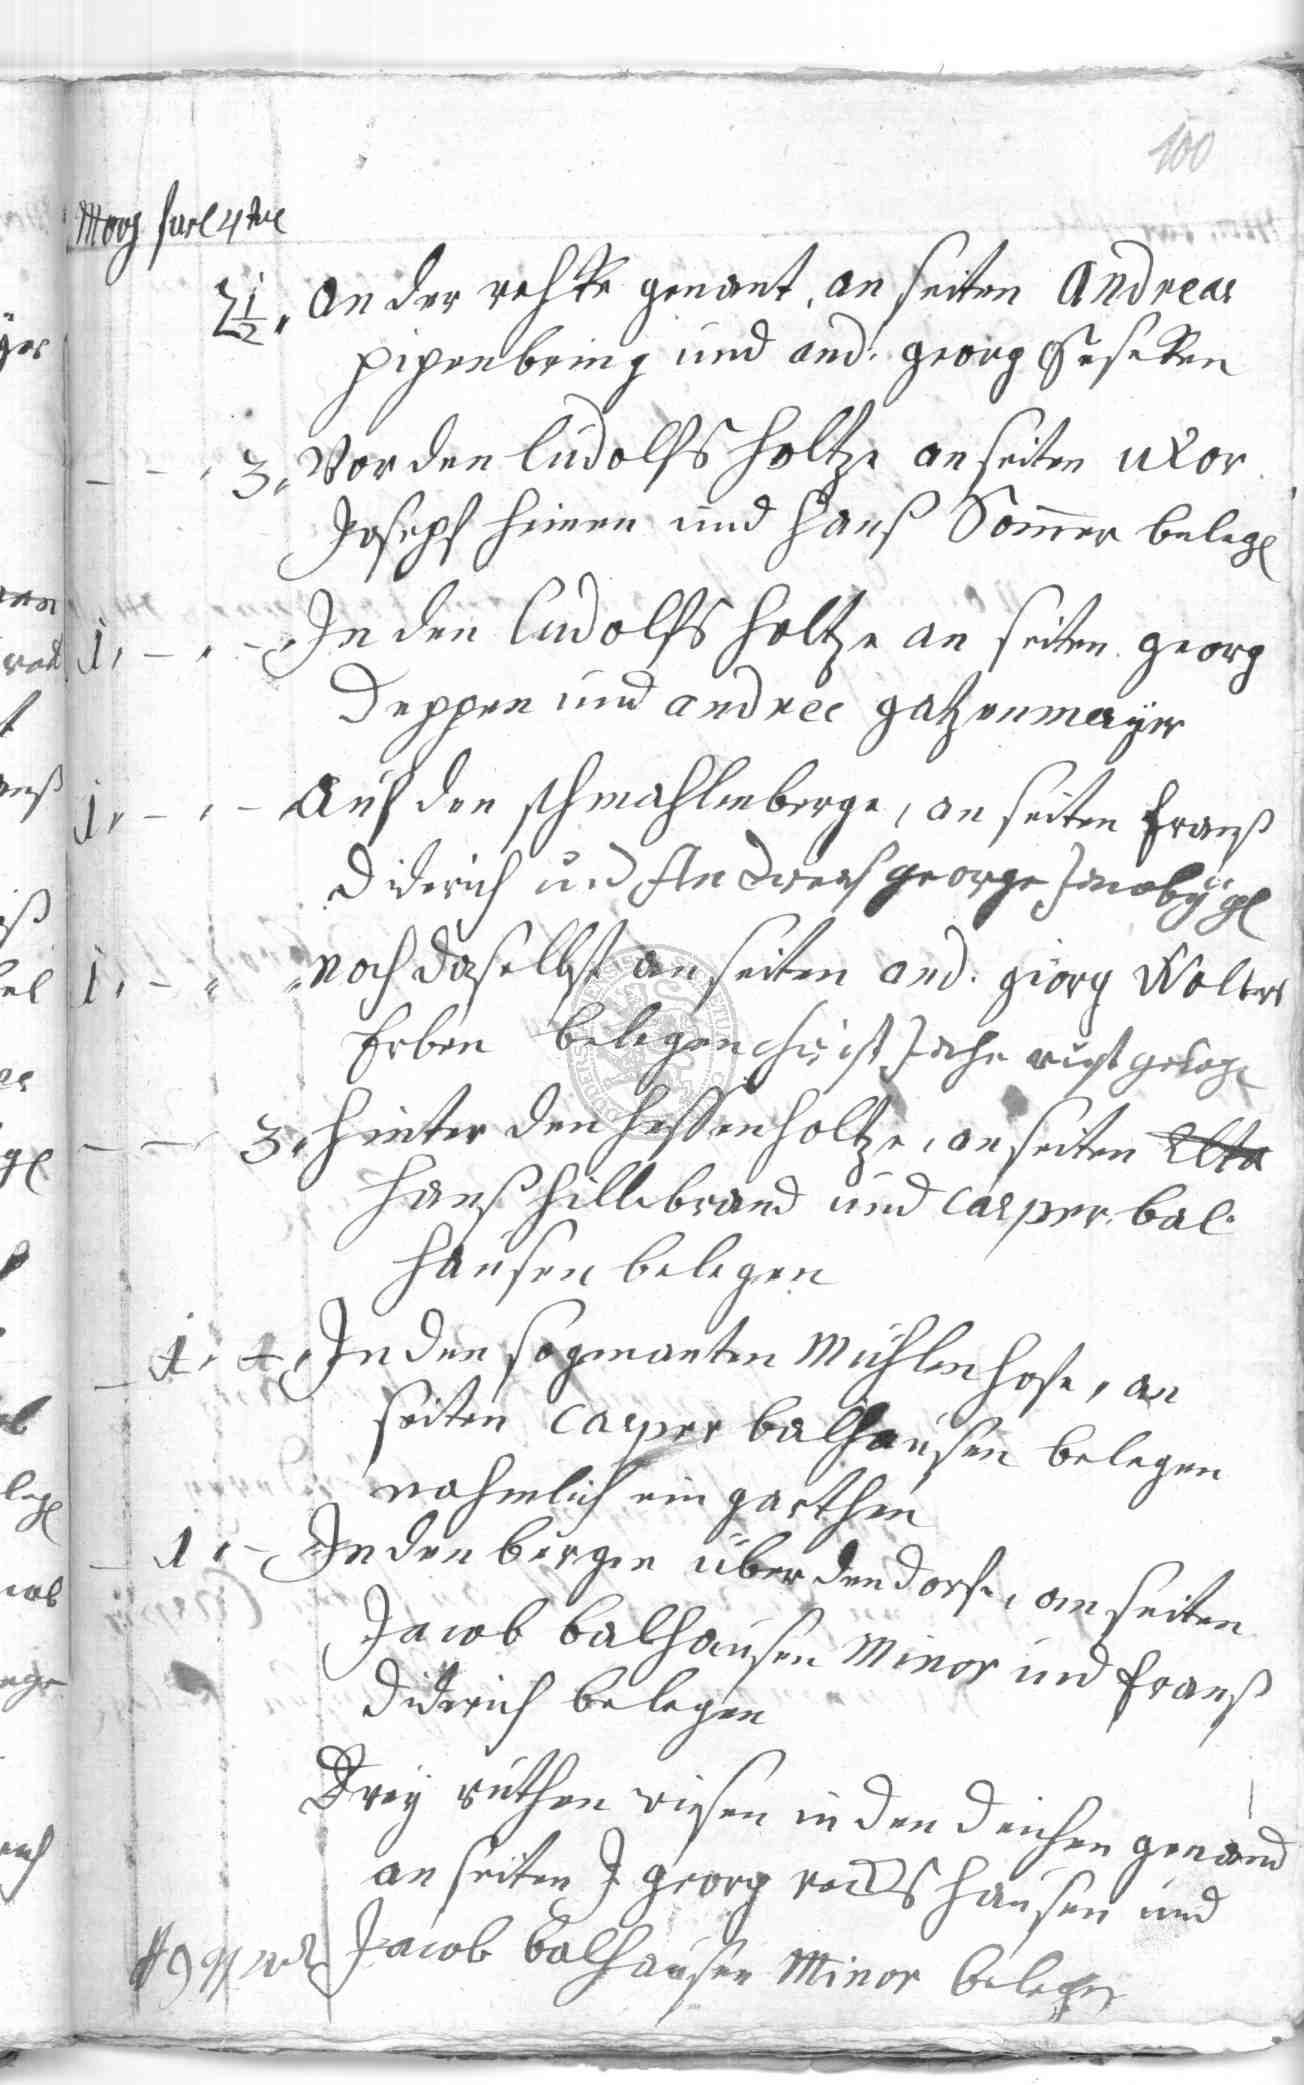 100
Morg 4tel
2 1/2, an der genant, an seiten Andreas
pipenbring und and. georg
– – 3, Vor den ludolfs holtze an seiten uxor
Joseph und Hanß Sommer beleg
1, – , – In den ludolfs holtze an seiten georg
Deppen und andree gatzenmayer
1, – , – Auf den schmahlenberge, an seiten Franß
Diderich und Andreas george
1, – , , noch daselbst an seiten and. giorg Wolters
Erben belegen christ
– – 3, hinter den hessenholtze, an seiten
Hanß hillebrand und Casper bal-
hausen belegen
– 1, In den sogenanten Mühlenhofe, an
seiten Casper balhausen belegen
nahmlich ein garthen
– 1, – In den bergen über den dorfe, an seiten
Jacob balhausen Minor und Franß
Diderich belegen
Drey ruthen wiesen in den deichen genand
an seiten J georg hausen und
Jacob balhausen Minor belegen